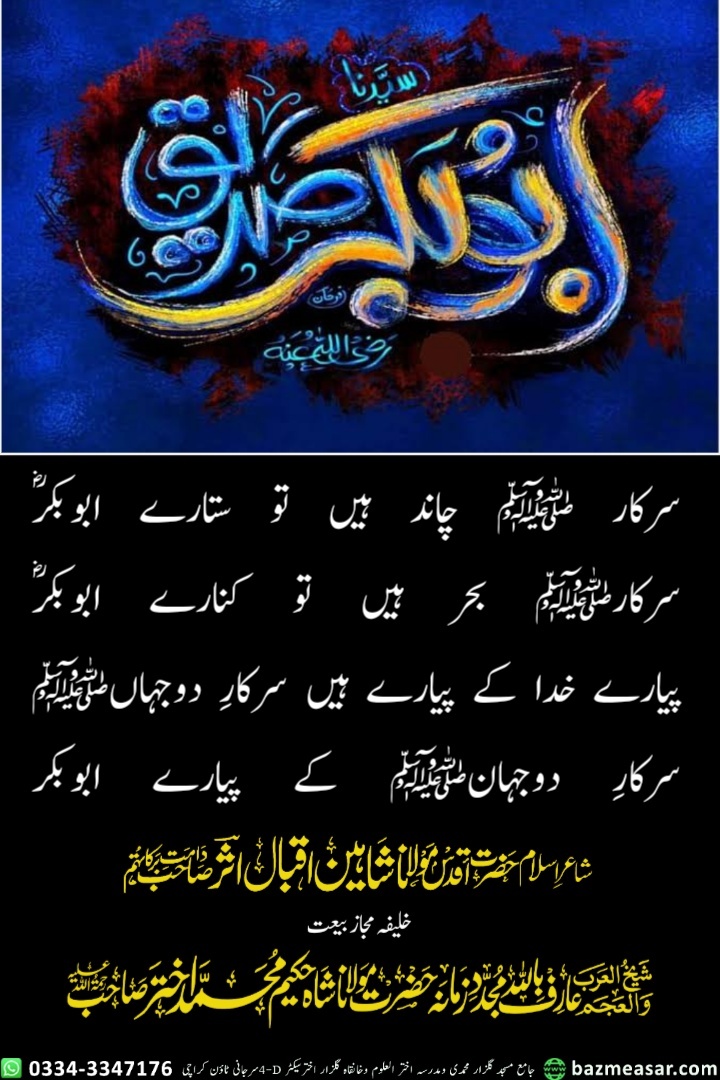 سیّدنا
ابوبکر صدیق
رضی اللہ عنہ
سرکار ﷺ چاند ہیں تو ستارے ابوبکرؓ
سرکارﷺ بحر ہیں تو کنارے ابوبکرؓ
پیارے خدا کے پیارے ہیں سرکارِ دوجہاںﷺ
سرکارِ دوجہانﷺ کے پیارے ابوبکر
شاعرِ اسلام حضرت اقدس مولانا شاہین اقبال اثر صاحب دامت برکاتہم
خلیفہ مجاز بیعت
شیخ العرب والعجم عارف باللہ مجددِ زمانہ حضرت مولانا شاہ حکیم محمد اختر صاحب رحمۃ اللہ علیہ
0334-3347176 جامع مسجد گلزار محمدی و مدرسہ اختر العلوم و خانقاہ گلزار اختر سیکٹر 4-D سرجانی ٹاؤن کراچی bazmeasar.com